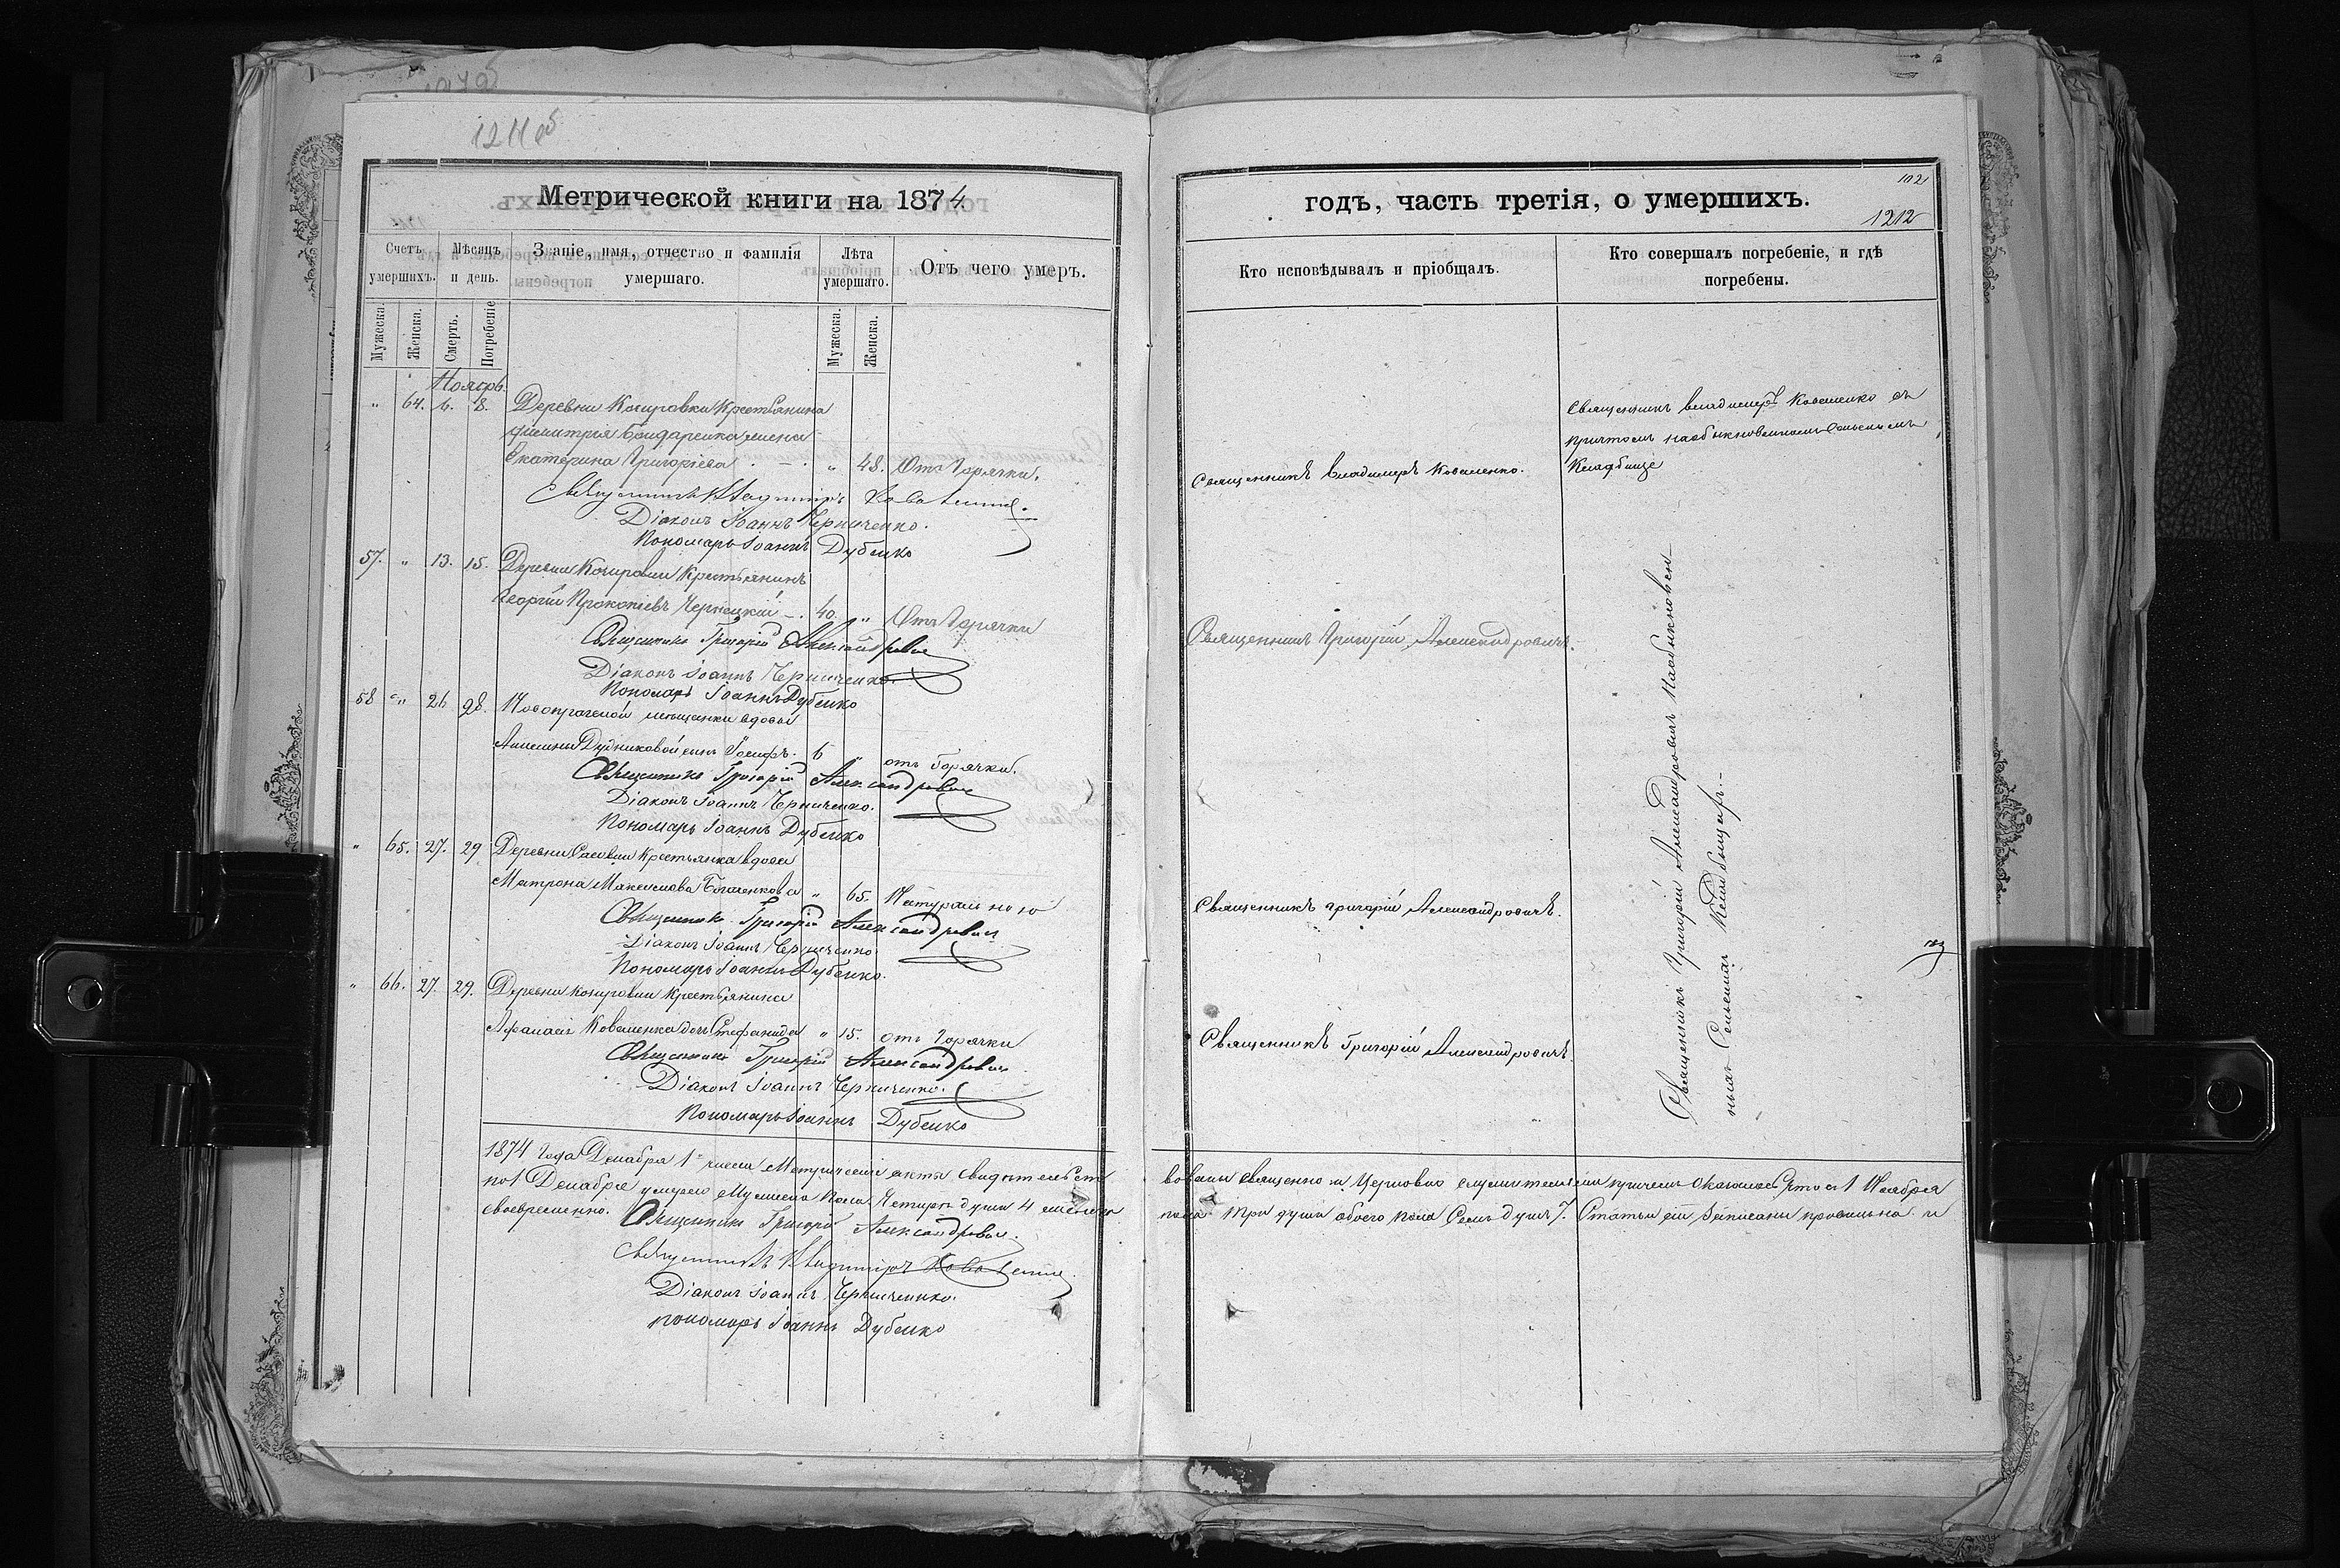 1211 об
Метрической книги на 1874
Счетъ умершихъ.
Мѣсяцъ и день.
Званіе, имя, отчество и фамилія умершаго.
Лѣта умершаго.
Отъ чего умеръ.
Мужеска.
Женска.
Смерть.
Погребеніе
Мужеска.
Женска.
Ноябрь.
" 64. 6. 8. Деревни Кочуровки Крестьянина
Димитрія Бондаренка жена
Екатерина Григоріева " 48. Отъ Горячки.
Священникъ Владиміръ Коваленко.
Діаконъ Іоаннъ Черниченко.
Пономарь Іоаннъ Дубенко
57. " 13. 15. Деревни Кочуровки Крестьянинъ
Георгій Прокопіевъ Чернецкій 40. " Отъ Горячки
Священникъ Григорій Александровичъ
Діаконъ Іоаннъ Черниченко.
Пономарь Іоаннъ Дубенко
58 " 26 28. мѣщанки вдовы
Дудниковой сынъ Іосифъ. 6 " отъ Горячки.
Священникъ Григорій Александровичъ
Діаконъ Іоаннъ Черниченко.
Пономарь Іоаннъ Дубенко
" 65. 27. 29 Деревни Крестьянка вдова
Матрона Максимова " 65. Натурально
Священникъ Григорій Александровичъ
Діаконъ Іоаннъ Черниченко
Пономарь Іоаннъ Дубенко.
" 66. 27. 29. Деревни Кочуровки Крестьянина
Афанасія Коваленка дочь Стефанида " 15. отъ Горячки
Священникъ Григорій Александровичъ
Діаконъ Іоаннъ Черниченко.
Пономарь Іоаннъ Дубенко
1874 года Декабря 1 числа Метрическіе акты свидѣтельст
по 1 Декабря умерло Мужеска пола Четыре души 4 женска
своевременно. Священникъ Григорій Александровичъ.
Священникъ Владиміръ Коваленко
Діаконъ Іоаннъ Черниченко.
пономарь Іоаннъ Дубенко
годъ, часть третія, о умершихъ.
1212
Кто исповѣдывалъ и пріобщалъ.
Кто совершалъ погребеніе, и гдѣ погребены.
Священникъ Владимеръ Коваленко съ
причтомъ на обыкновенномъ сельскомъ
Кладбище
Священникъ Владимеръ Коваленко.
Священникъ Григорій Александровичъ.
Священникъ Григорій Александровичъ.
Священникъ Григорій Александровичъ
Священникъ Григорій Александровичъ на обыкновен-
Сельскомъ Кладбищѣ.
вованы священно и церковно служителями причемъ оказалось что съ 1 Ноября
пола три души обоего пола Семь душъ 7. Статьи сіи записаны правильно и